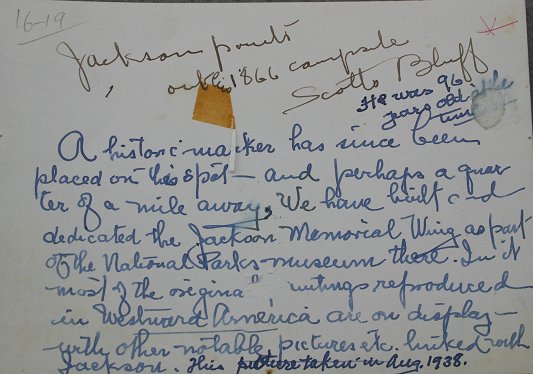 16-19
Jackson points
out his 1866 campsite
Scotts Bluff
He was 96
years old at the
time
A historic marker has since been
placed on this spot — and perhaps a quar
ter of a mile away, We have built and
dedicated the Jackson Memorial Wing as part
of the National Parks museum there. In it
most of the origina
in Westward America are on display —
with other notable pictures etc. linked with
Jackson. This picture taken in Aug. 1938.